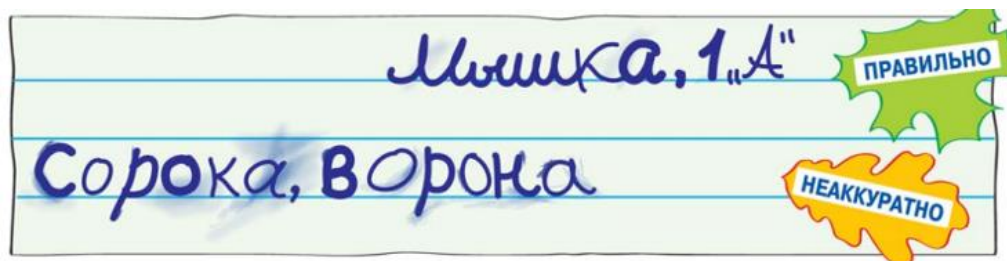 Мышка, 1 „А“
ПРАВИЛЬНО
Сорока, ворона
НЕАККУРАТНО